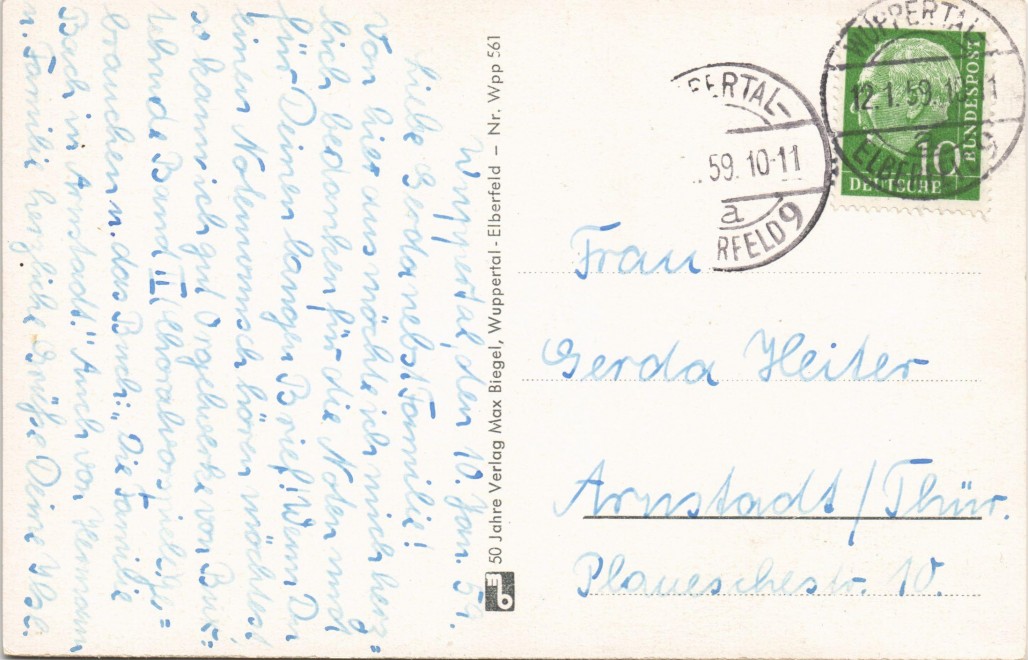 Wuppertal, den 10. Jan. 59.
Liebe Gerda nebst Familie!
Von hier aus möchte ich mich herz=
lich bedanken für die Noten und
für Deinen langen Brief! Wenn Du
einen Notenwunsch hören möchtest
so kann ich gut Orgelwerke von Bux=
tehude Band III (Choralvorspiele) ge=
brauchen u. das Buch: „Die Familie
Bach in Arnstadt." Auch von Hermann
u. Familie herzliche Grüße Deine Ilse.
50 Jahre Verlag Max Biegel, Wuppertal-Elberfeld – Nr. Wpp 561
WUPPERTAL-
12.1.59.10-11
a
ELBERFELD 9
10
DEUTSCHE
BUNDESPOST
PERTAL-
59.10-11
a
RFELD 9
Frau
Gerda Heiter
Arnstadt/Thür.
Plaueschestr. 10.